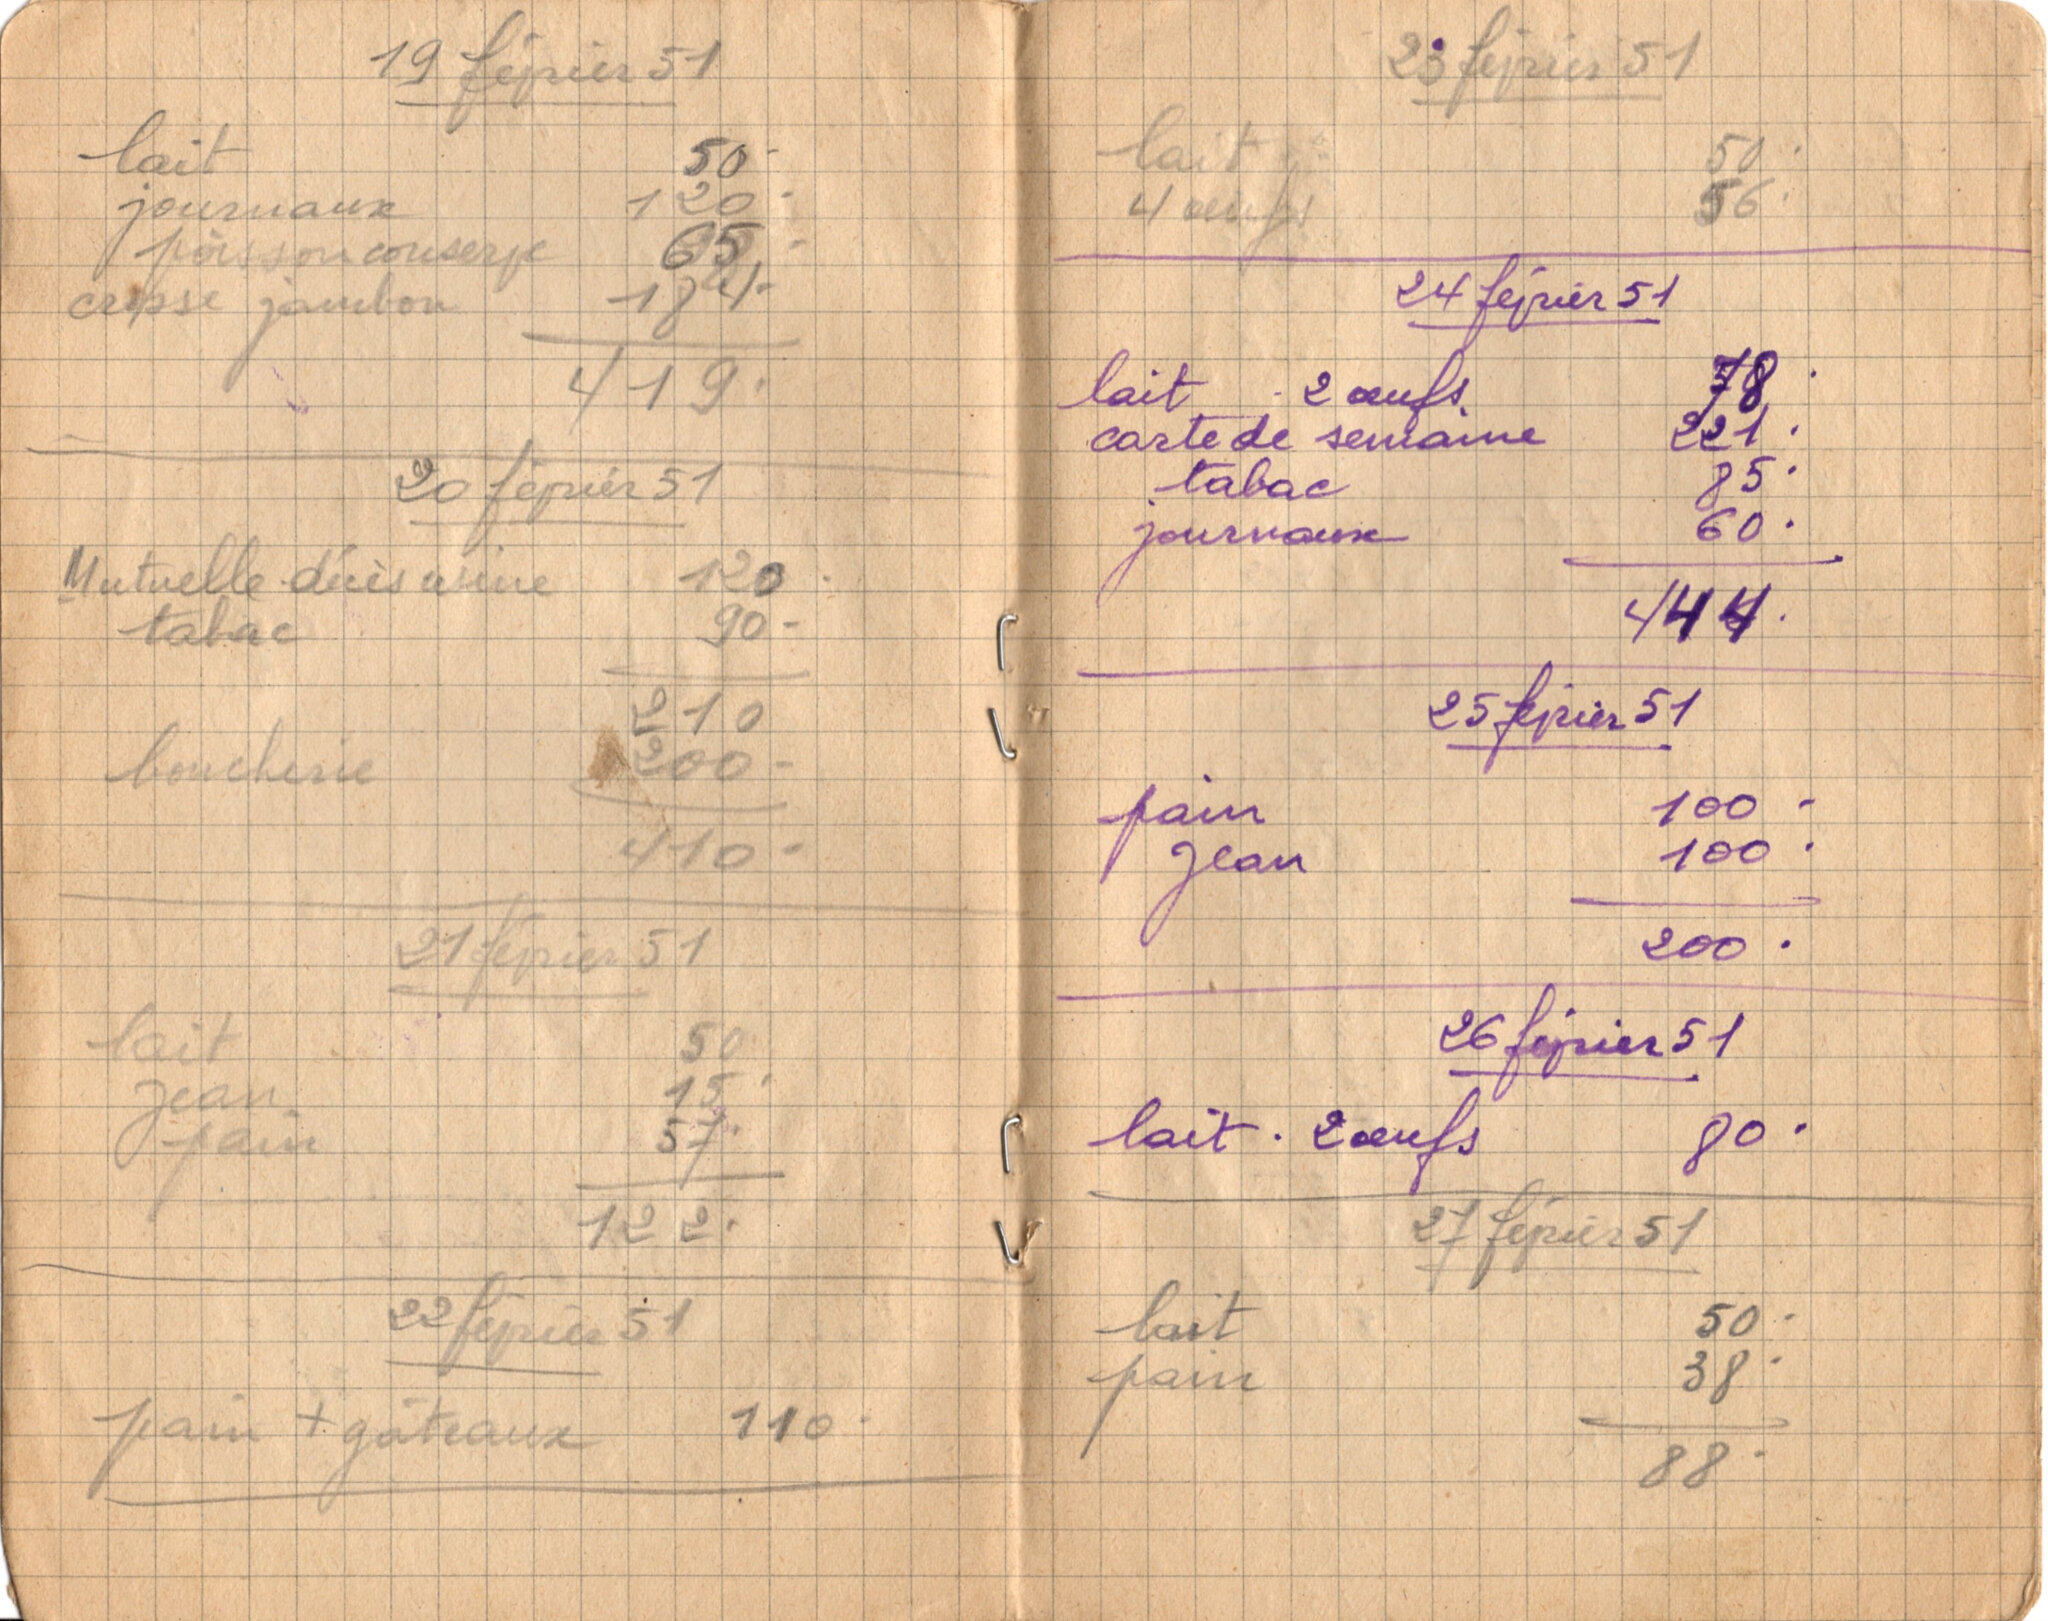 19 février 51
lait 50-
journaux 120-
poisson conserve 65-
crosse jambon 184-
419.
20 février 51
Mutuelle décès usine 120.
tabac 90-
210
boucherie 200-
410-
21 février 51
lait 50
Jean 15.
pain 57.
122.
22 février 51
pain + gâteaux 110-
23 février 51
lait 50.
4 œufs 56.
24 février 51
lait - 2 œufs 78.
carte de semaine 221.
tabac 85.
journaux 60.
444.
25 février 51
pain 100-
Jean 100.
200.
26 février 51
lait . 2 œufs 80.
27 février 51
lait 50-
pain 38-
88.